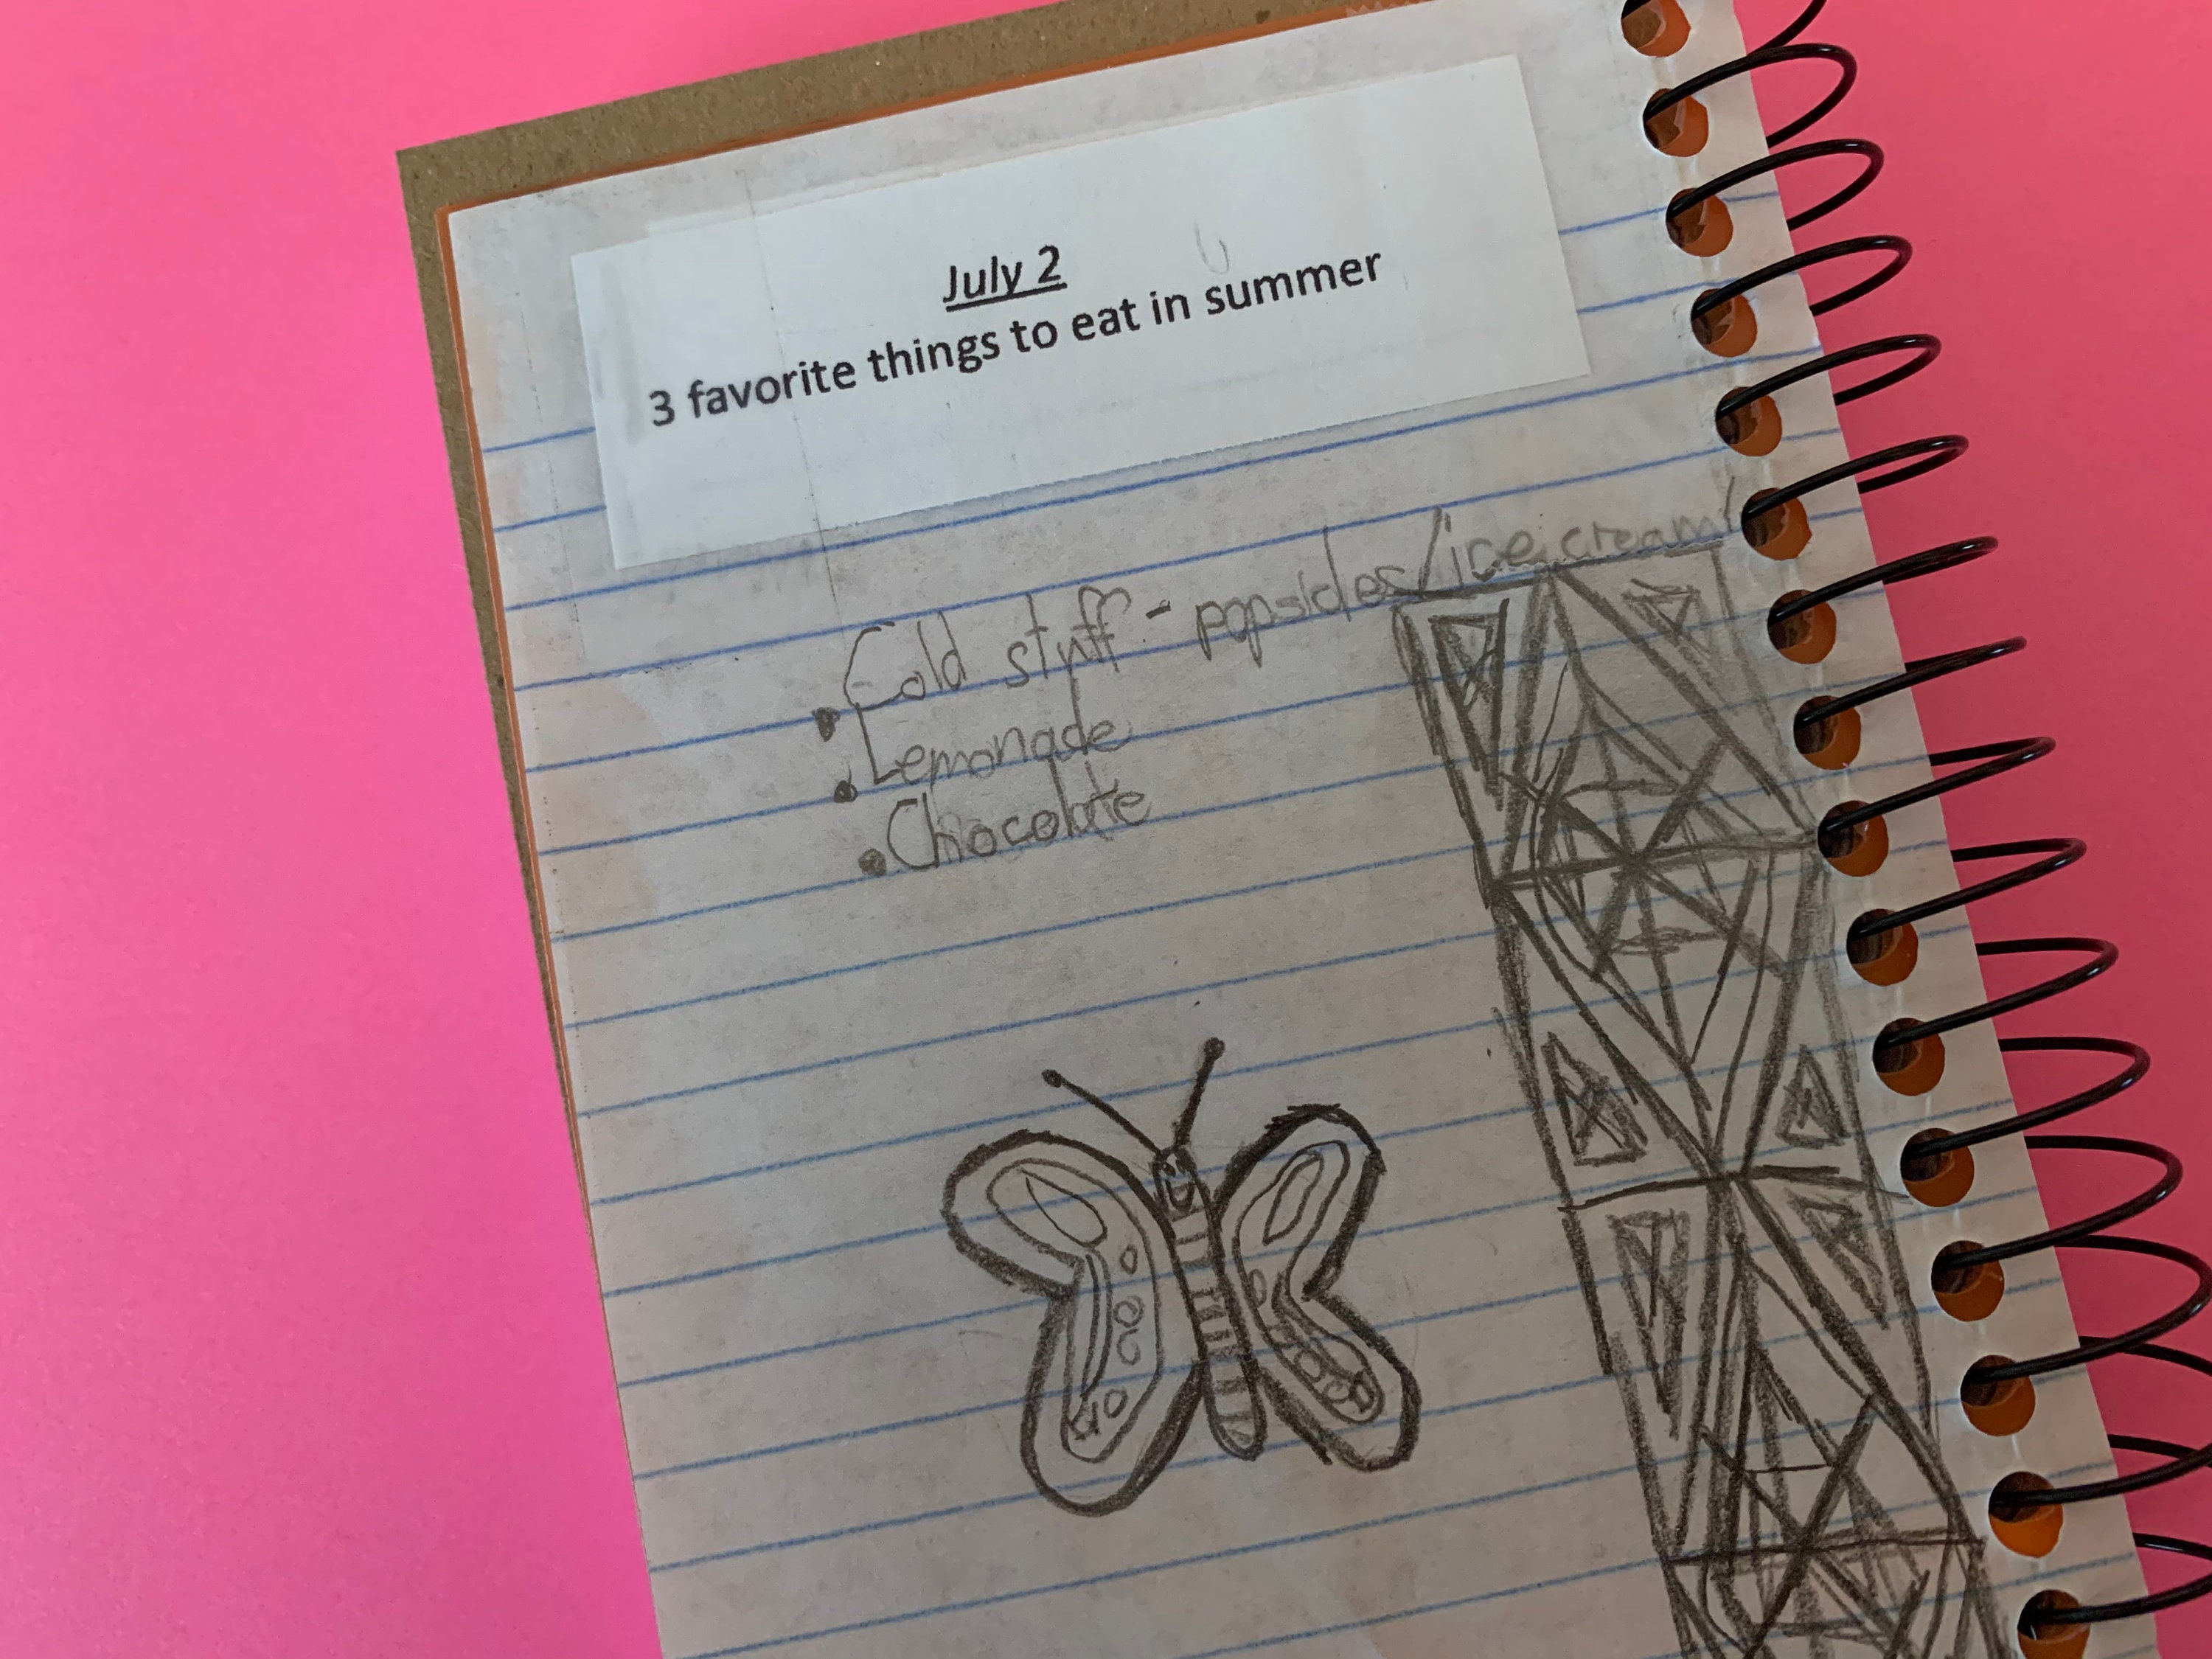 July 2
3 favorite things to eat in summer
• Cold stuff - popsicles/ice cream
• Lemonade
• Chocolate